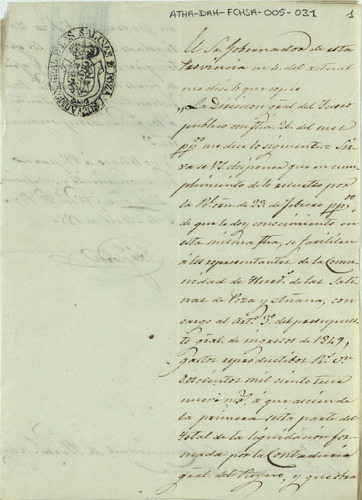 ATHA-DAH-FCHSA-005-031
1
SALINAS
El Sr. Gobernador de esta
Provincia en 4. del actual
me dice lo que copio
"La Direccion gral. del Tesoro
publico con fha. 26. del mes
ppdo me dice lo siguiente = Sir
vase V.S. disponer que en cum
plimiento de lo resuelto por
la Rl. orn. de 23. de febrero ppdo.
de que le doy conocimiento en
esta misma fha, se faciliten
á los representantes de la Comu
nidad de Hered.s de las Sali
nas de Poza y Añana, con
cargo al Artº. 3º. del presupues
to gral. de ingresos de 1849,
gastos reproductibos R.s Vn.
doscientos mil ciento trece
nueve mrs. á que asciende
la primera sesta parte del
total de la liquidacion for
mada por la Contaduria
gral. del Reyno, y que dra